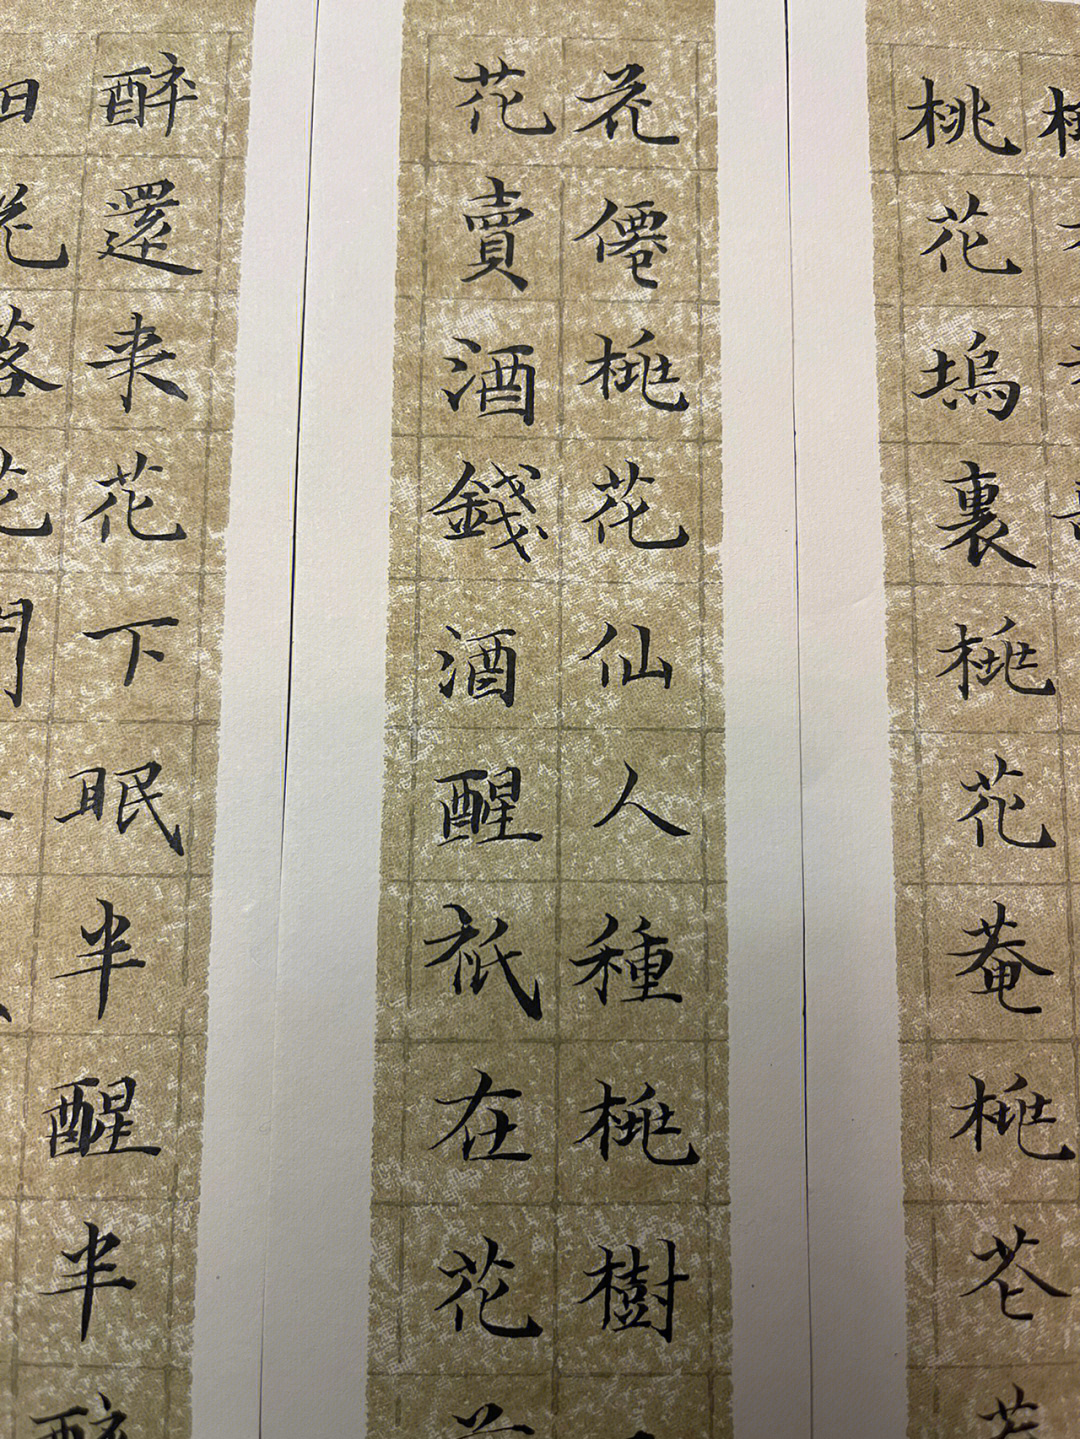 桃花塢裏桃花菴桃花
花僊桃花仙人種桃樹
花賣酒錢酒醒祇在花
醉還来花下眠半醒半醉
日花落花